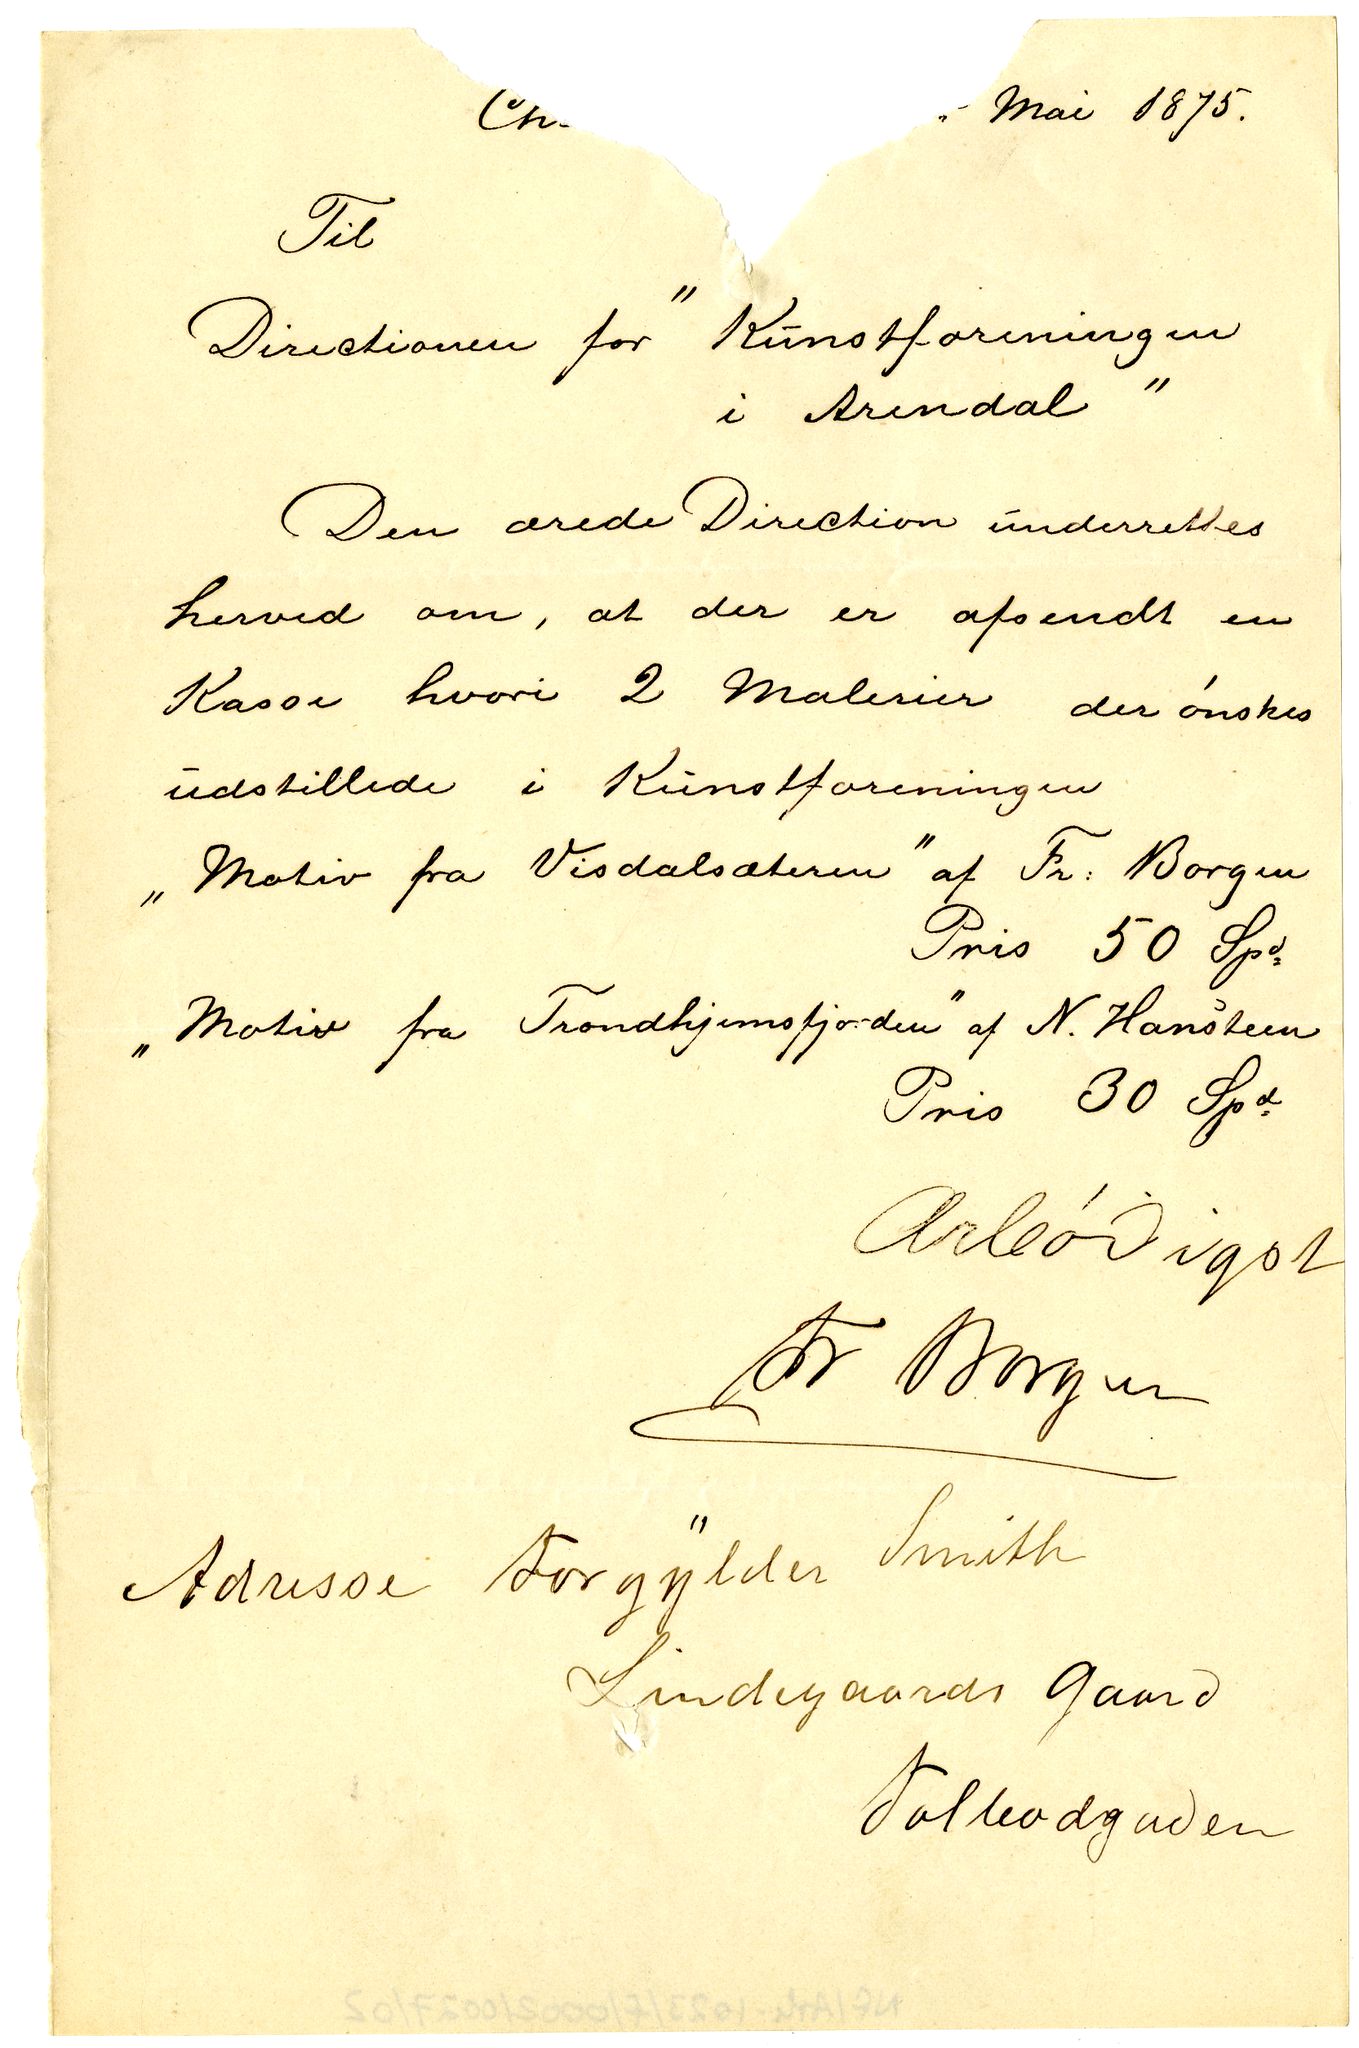 Ch Mai 1875.
Til
Directionen for " Kunstforeningen
i Arendal "
Den ærede Direction underrettes
herved om, at der er afsendt en
Kasse hvori 2 Malerier der ónskes
udstillede i Kunstforeningen
„ Motiv fra Visdalsæteren " af Fr: Borgen
Pris 50 Spd
„ Motiv fra Trondhjemsfjorden " af N. Hansteen
Pris 30 Spd
Ærbódigst
Fr Borgen
Adresse Forgylder Smith
Lindegaards Gaard
Tolbodgaden
NF/Ark-1023/F/0002/0027/02